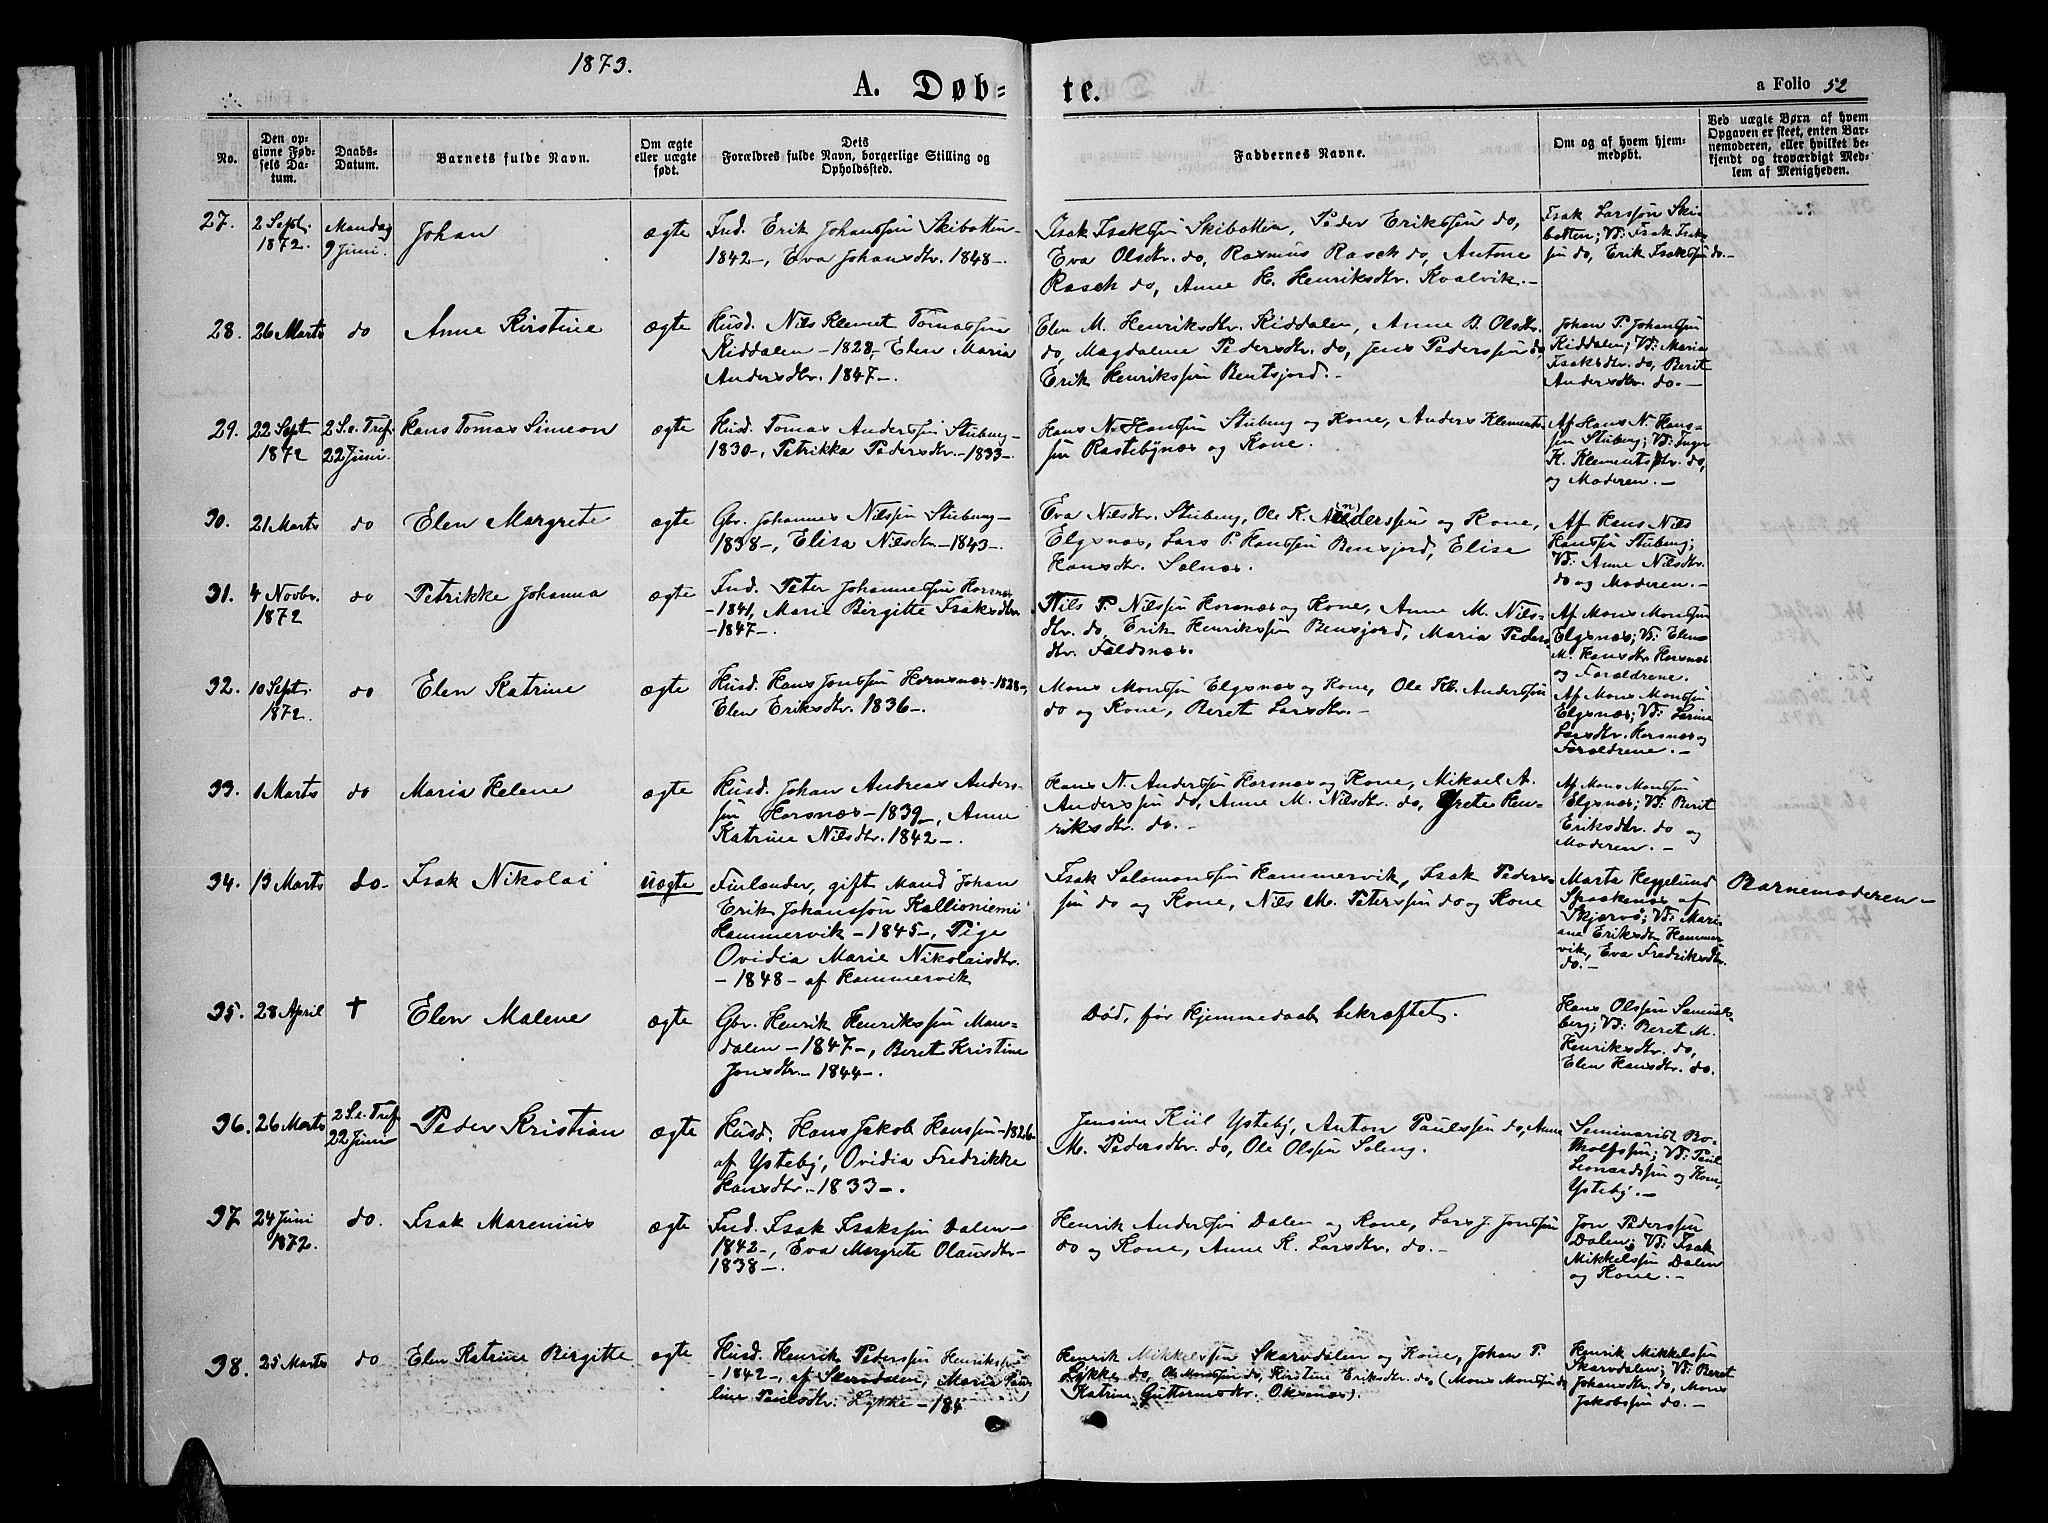 1873.
A. Døbte.
a Folio 52
No.
Den opgivne Fødsels Datum.
Daabs-Datum.
Barnets fulde Navn.
Om ægte eller uægte født.
Dets Forældres fulde Navn, borgerlige Stilling og Opholdssted.
Faddernes Navne.
Om og af hvem hjemmedøbt.
Ved uægte Børn af hvem Opgaven er skeet, enten Barnemoderen, eller hvilket bekjendt og troværdigt Medlem af Menigheden.
27. 2 Sept. 1872. Mandag 9 Juni. Johan ægte
Ind. Erik Johanssøn Skibotten
1842-, Eva Johansdtr. 1848-
Isak Isakssøn Skibotten, Peder Erikssøn do,
Eva Olsdtr. do, Rasmus Rasch do, Antone
Rasch do, Anne H. Henriksdtr. Kvalvik.-
Isak Larssøn Ski-
botten; Vd: Isak Isaks-
søn do, Erik Isakssøn do.-
28. 26 Marts do Anne Kirstine ægte
Husd. Nils Klemet Tomassøn
Kiddalen -1828-, Elen Maria
Andersdtr. 1847-.
Elen M. Henriksdtr. Kiddalen, Anne B. Olsdtr.
do, Magdalene Pedersdtr. do, Jens Pederssøn do,
Erik Henrikssøn Bentsjord.-
Johan P. Johanssøn
Kiddalen; Vd: Maria
Isaksdtr. do, Berit
Andersdtr. do.-
29. 22 Sept 1872 2 S. e. Tref. 22 Juni. Hans Tomas Simeon ægte
Husd. Tomas Anderssøn Stuberg-
1830-, Petrikka Pedersdtr.-1833-
Hans N. Hanssøn Stuberg og Kone, Anders Klemets-
søn Rastebynæs og Kone.
Af Hans N. Hans-
søn Stuberg; Vd: Inger
K. Klementsdtr. do,
og Moderen.-
30. 21 Marts do Elen Margrete ægte
Gbr. Johannes Nilssøn Stuberg-
1838-, Elisa Nilsdtr.-1843-.
Eva Nilsdtr. Stuberg, Ole K. Anderssøn og Kone,
Elgsnæs, Lars P. Hanssøn Bensjord, Elise
Hansdtr. Solnæs.
Af Hans Nils
Hanssøn Stuberg;
Vd: Anne Nilsdtr.
do og Moderen.-
31. 4 Novbr. 1872 do Petrikke Johanna ægte
Ind. Peter Johannessøn Horsnæs
-1841, Marie Birgitte Isaksdtr.
-1847-.
Nils P. Nilssøn Horsnæs og Kone, Anne M. Nils-
dtr. do, Erik Henrikssøn Bensjord, Maria Peders-
dtr. Faldsnæs.
Af Mons Monssøn
Elgsnæs; Vd: Elen
M. Hansdtr Horsnæs
og Forældrene.
32. 10 Sept. 1872. do Elen Katrine ægte
Husd. Hans Jonssøn Hornsnæs-1828-,
Elen Eriksdtr. 1836-.
Mons Monssøn Elgsnæs og Kone, Ole Kl. Anderssøn
do og Kone, Beret Larsdtr.-
Af Mons Monssøn
Elgsnæs; Vd: Larine
Larsdtr. Horsnæs og
Forældrene.-
33. 1 Marts do Maria Helene ægte
Husd. Johan Andreas Anders-
søn Horsnæs-1839-, Anne
Katrine Nilsdtr. 1842-.
Hans N. Anderssøn Horsnæs og Kone, Mikael A.
Anderssøn do, Anne M. Nilsdtr. do, Grete Hen-
riksdtr. do.-
Af Mons Monssøn
Elgsnæs; Vd: Berit
Eriksdtr. do og
Moderen.-
34. 13 Marts do- Isak Nikolai uægte
Finlænder, gift Mand Johan
Erik Johanssøn Kallioniemi
Hammervik -1845-, Pige
Ovidia Marie Nikolaisdtr.
-1848- af Hammervik
Isak Salomonssøn Hammervik, Isak Peders-
søn do og Kone, Nils M. Peterssøn do og Kone
Marta Heggelund
Spaakenæs af
Skjærvø; Vd: Mari-
ane Eriksdtr Hammer-
vik, Eva Fredriksdtr.
do.-
Barnemoderen-
35. 28 April † Elen Malene ægte
Gbr. Henrik Henrikssøn Man-
dalen -1847-, Beret Kristine
Jonsdtr.-1844-.
Død, før Hjemmedaab bekræftet.
Hans Olssøn Samuels-
berg; Vd: Beret M.
Henriksdtr. do,
Elen Hansdtr. do.
36. 26 Marts 2 S. e. Tref 22 Juni Peder Kristian ægte
Husd. Hans Jakob Hanssøn-1826-
af Ysteby, Ovidia Fredrikke
Hansdtr.-1833-.
Jensine Kiil Ysteby, Anton Paulssøn do, Anne
M. Pedersdtr. do, Ole Olssøn Soleng.
Seminarist Bo-
tholfssøn; Vd: Paul
Leonardssøn og Kone,
Ysteby.-
37 24 Juni 1872. do. Isak Marenius ægte
Ind. Isak Isakssøn Dalen-
1842-, Eva Margrete Olausdtr-
1838-.
Henrik Anderssøn Dalen og Kone, Lars J. Jonssøn
do og Kone, Anne K. Larsdtr. do.-
Jon Pederssøn
Dalen; Vd: Isak
Mikkelssøn Dalen
og Kone.-
38. 25 Marts do Elen Katrine Birgitte ægte
Husd. Henrik Pederssøn Henrikssøn
-1842-, af Skarvdalen, Maria Pau-
line Paulsdtr. Lykke -184
Henrik Mikkelssøn Skarvdalen og Kone, Johan P.
Lykke do, Ole Monssøn do, Kirstine Eriksdtr. do, (Mons Monssøn do
Katrine Guttormsdtr. Oksnæs).
Henrik Mikkelssøn
Skarvdalen; Vd: Beret
Johansdtr. do, Mons
Jakobssøn do.-